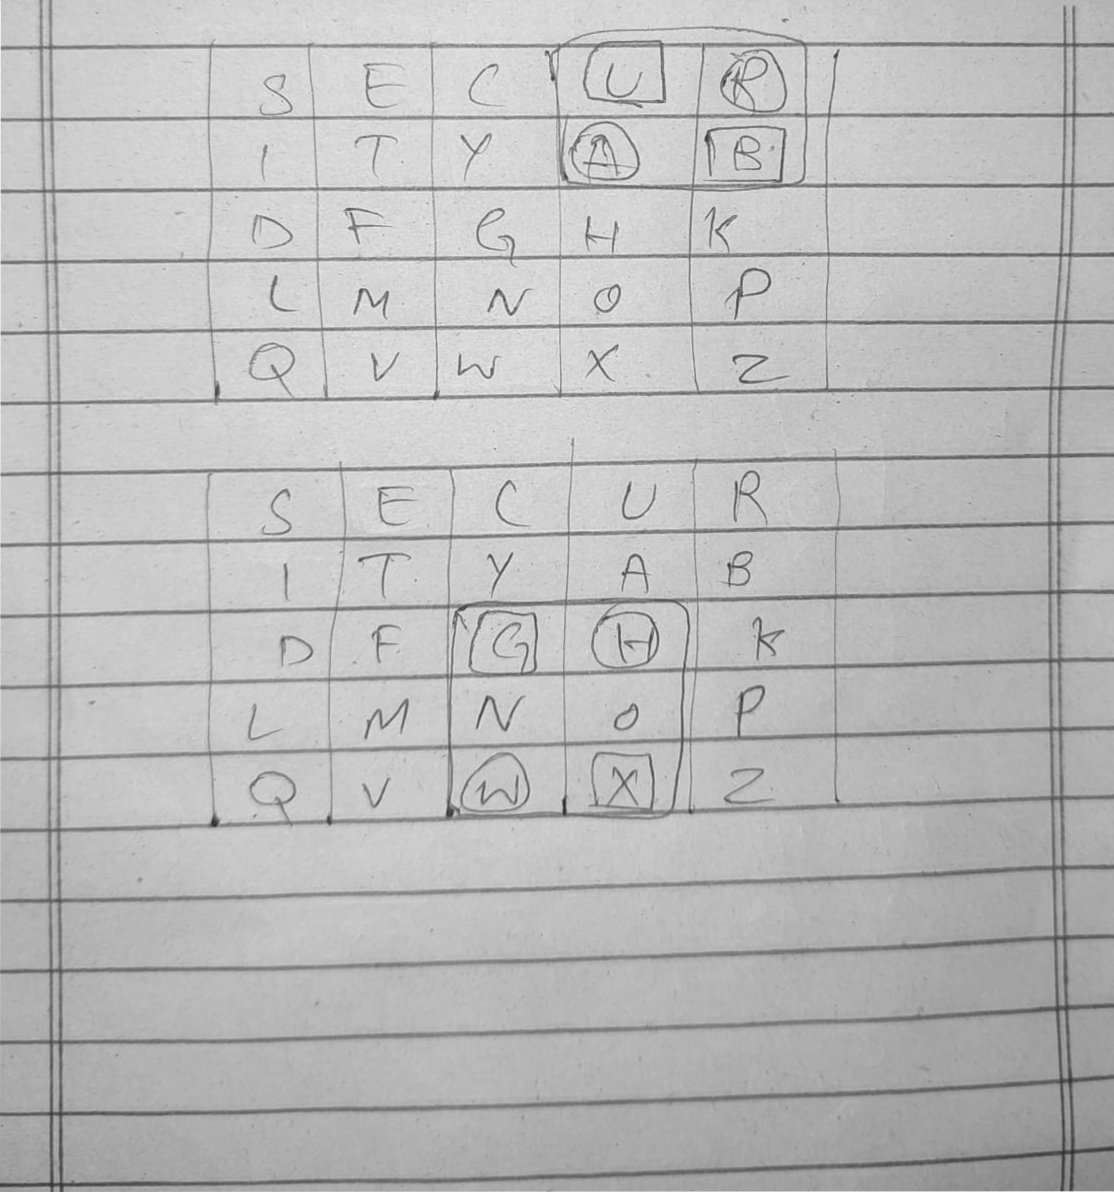 S E C U R
I T Y A B
D F G H K
L M N O P
Q V W X Z
S E C U R
I T Y A B
D F G H K
L M N O P
Q V W X Z